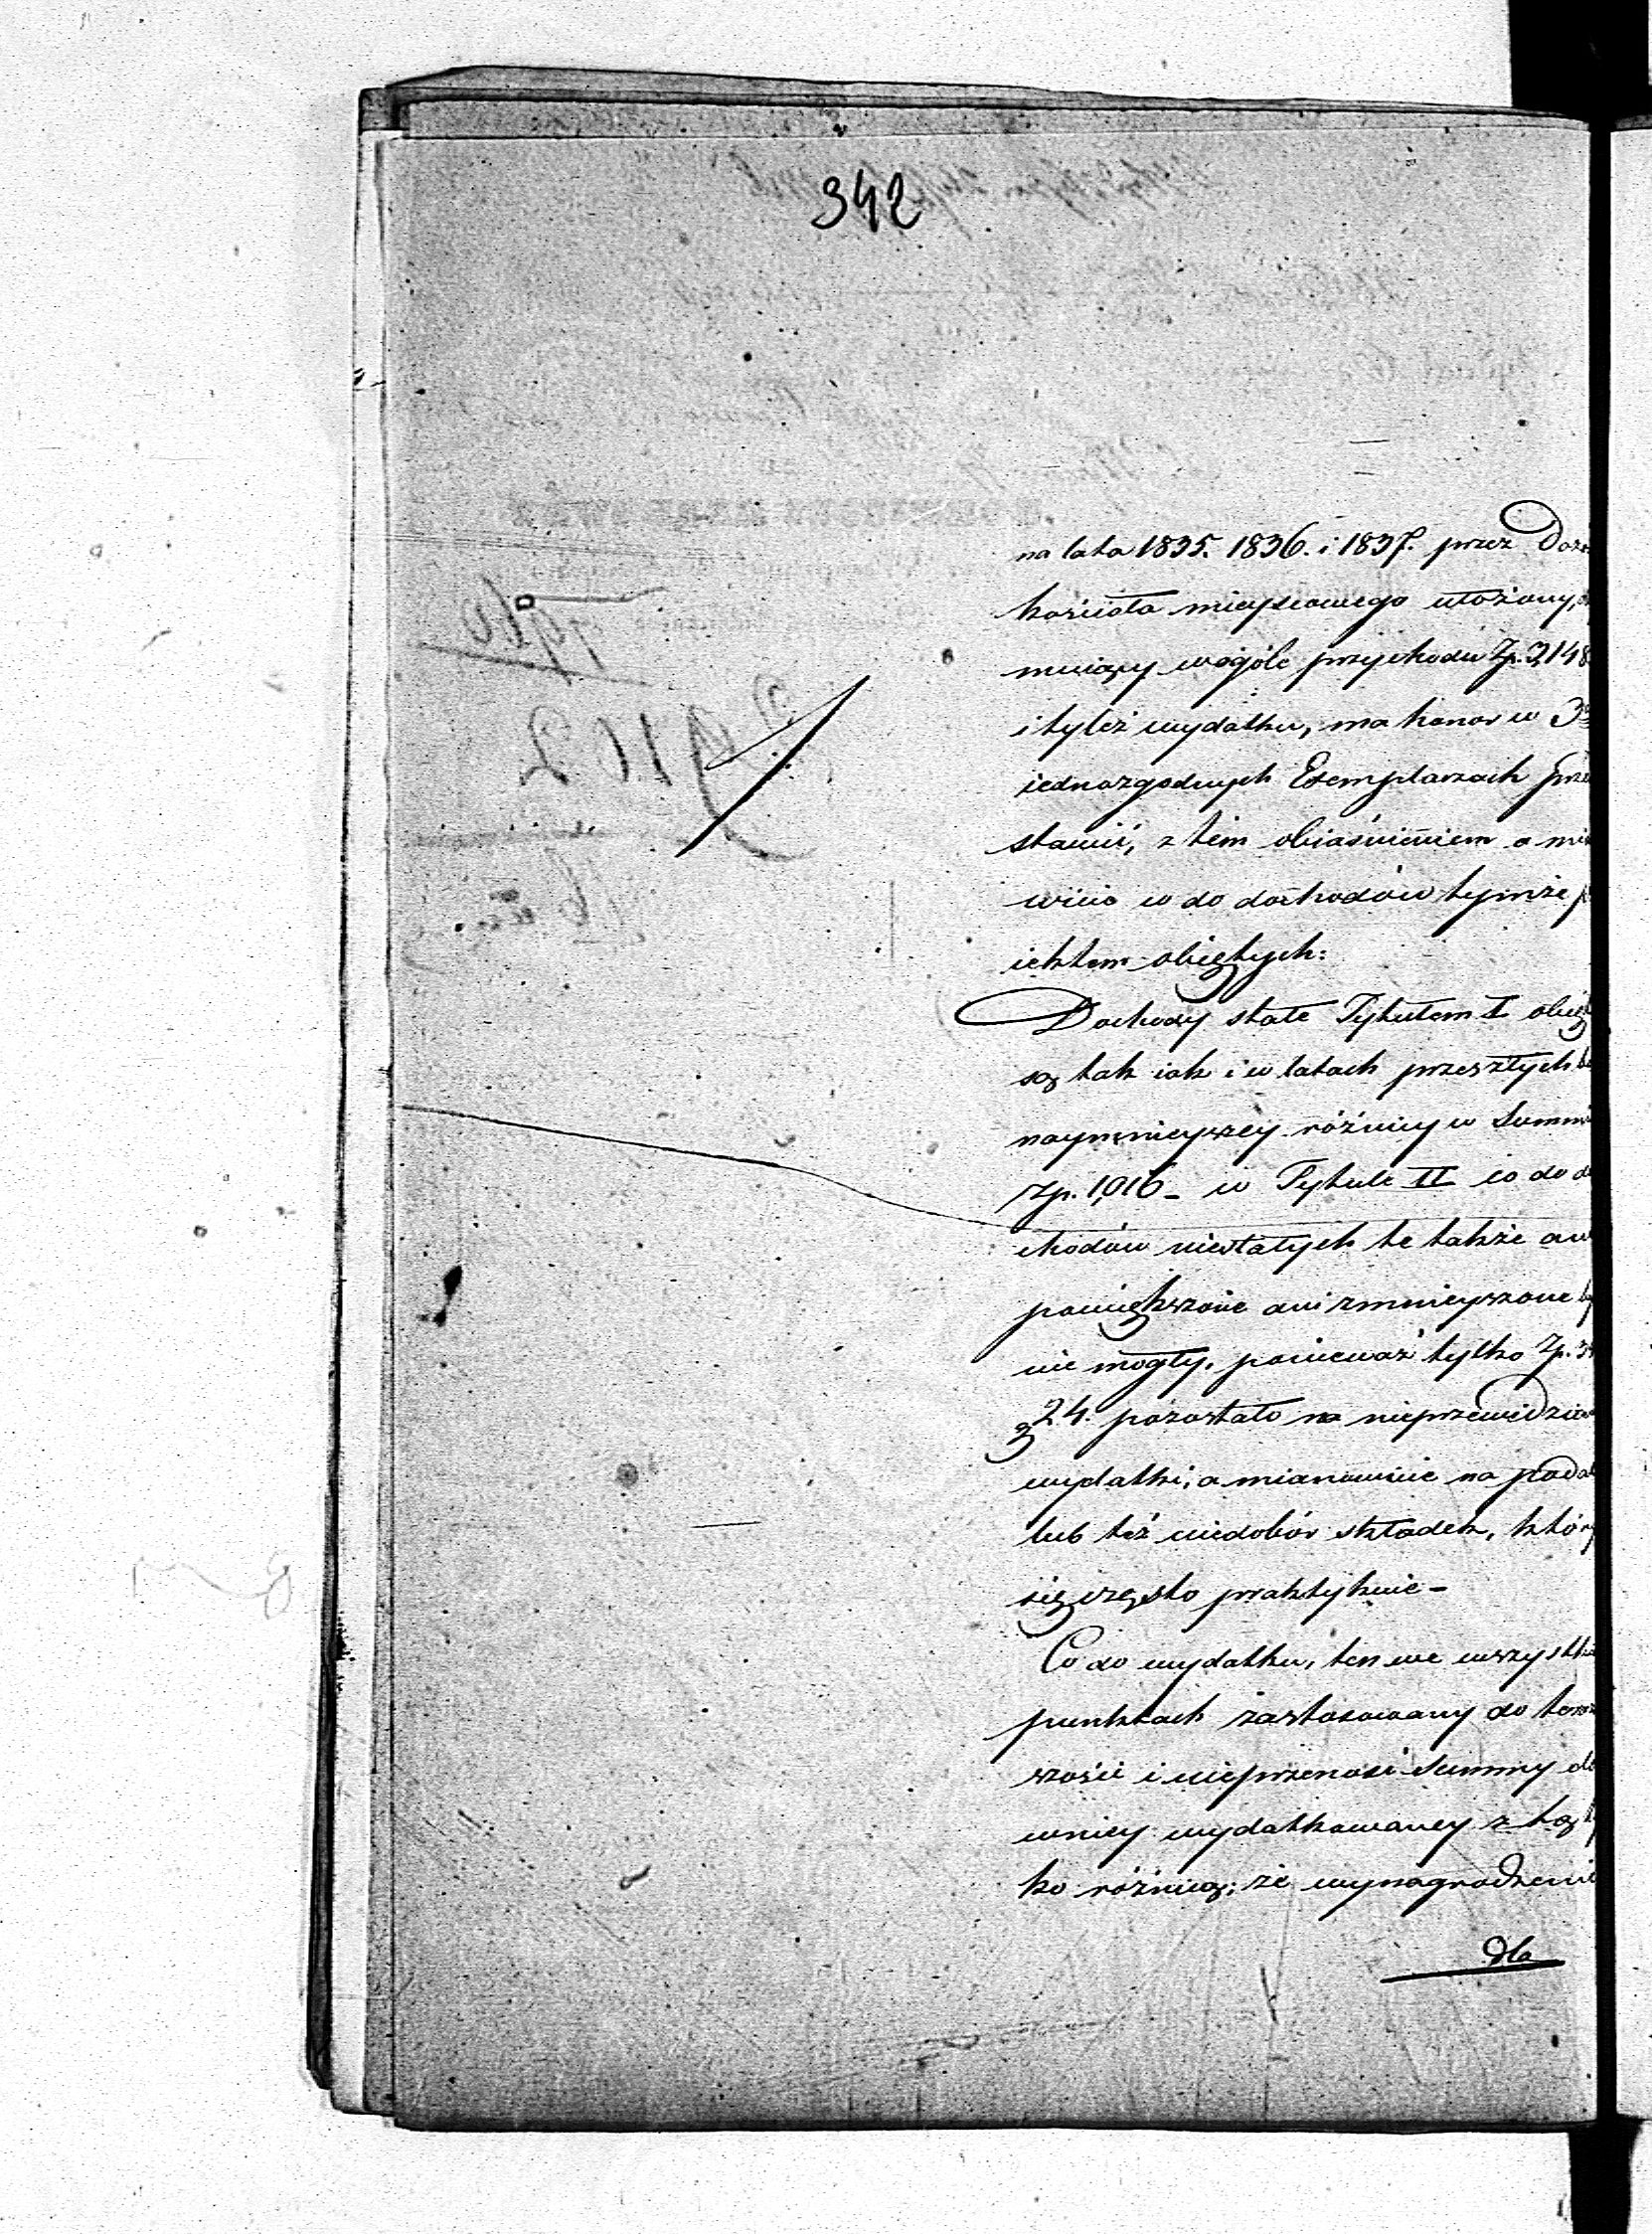 342
na lata 1835. 1836. i 1837. przez Dozo
kościoła mieyscowego ułożony,
muiący wogóle przychodu Zp. 3148
i tyleż wydatku, ma honor w 3ch
iednozgodnych Exemplarzach prze
stawić, z tém obiaśnieniem a mia
wicie co do dochodów tymże p
iektem obiętych:
Dochody stałe Tytułem I obięt
są tak iak i w latach przeszłych be
naymnieyszey różnicy w Summi
Zp. 1,016 - w Tytule II co do do
chodów niestałych te także ani
powiększone ani zmnieyszone by
nie mogły, ponieważ tylko Zp. 3
g 24. pozostało na nieprzewidzian
wydatki, a mianowicie na podat
lub też niedobór składek, który
się często praktykuie -
Co do wydatku, ten we wszystki
punktach zastosowany do teraz
szości i nieprzenosi Summy da
wniey wydatkowaney z tą ty
ko różnicą; że wynagrodzenie
dla